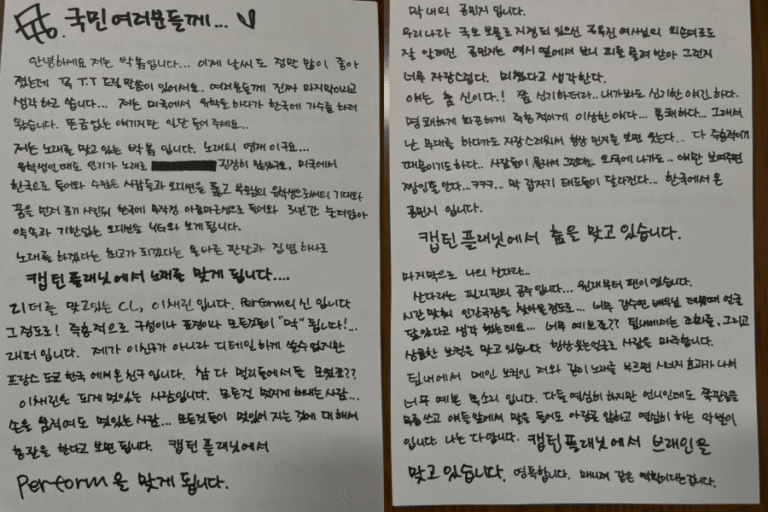 국민 여러분들께...
안녕하세요 저는 박봄입니다... 이제 날씨도 정말 많이 좋아
졌는데 꼭 T.T 드릴 말씀이 있어서요. 여러분들께 진짜 마지막이라고
생각하고 씁니다... 저는 미국에서 유학도 하다가 한국에 가수를 하러
왔습니다. 뜬금없는 얘기지만 일단 들어주세요...
저는 노래를 맞고 있는 박봄 입니다. 노래의 영재 이구요...
유학생인 때도 인기가 노래로 굉장히 많았구요, 미국에서
한국으로 들어와 수많은 사람들과 오디션을 뚫고 유학생으로써의 기대와
꿈을 먼저 포기 시킨뒤 한국에 무작정 들어와 3년간 눈더밟아
약속과 기한없는 오디션을 YG와 보게 됩니다.
노래를 하겠다는 최고가 되겠다는 올바른 판단과 집념 하나로
캡틴 플래닛에서 노래를 맞게 됩니다....
리더를 맞고있는 CL, 이채린 입니다. Perform의 신 입니다
그 정도로! 즉흥적으로 구성이나 표정이나 모든것들이 "막" 됩니다!...
래퍼 입니다. 제가 이친구가 아니라 디테일하게 쓸수없지만
프랑스 도쿄 한국 에서 온 친구 입니다. 참 다 멀리들에서들 모였죠??
이채린은 되게 멋있는 사람입니다. 모든걸 멋지게 해내는 사람...
손을 움직여도 멋있는 사람... 모든것들이 멋있어 지는 것에 대해서
통관을 한다고 보면 됩니다. 캡틴 플래닛에서
Perform을 맞게 됩니다.
막내의 공민지 입니다.
우리나라 국보 보물로 지정되 있으신 공옥진 여사님의 외손녀로도
잘 알려진 공민지는 역시 옆에서 보니 피를 물려 받아 그런지
너무 자랑스럽다. 미쳤다고 생각한다.
얘는 춤 신이다.! 좀 신기하더라.. 내가봐도 신기한 애긴 하다.
명쾌하게 화끈하게 즉흥적이게 이상한 애다... 통쾌하다... 그래서
난 무대를 하다가도 자랑스러워서 항상 민지를 보면 웃는다.. 다 즉흥적이기
때문이기도 하다.. 사람들이 몰라서 그런데.. 외국에 나가도.. 얘만 보여주면
짱인줄 안다...ㅋㅋㅋ... 막 갑자기 태도들이 달라진다... 한국에서 온
공민지 입니다.
캡틴 플래닛에서 춤을 맞고 있습니다.
마지막으로 나의 산다라..
산다라는 필리핀의 공주 입니다... 원래부터 팬이였습니다.
시간 맞춰 인간극장을 찾아볼 정도로... 너무 강수연 배우님 데뷔때 얼굴
닮았다고 생각 했는데요... 너무 예쁘죠?? 팀내에서는 조화를, 그리고
상큼한 보컬은 맞고 있습니다 항상 웃는얼굴로 사람을 마주합니다.
팀내에서 메인 보컬인 저와 같이 노래를 부르면 시너지 효과가 나서
너무 예쁜 목소리 입니다. 다들 열심히 하지만 언니인데도 쪽팔림을
무릅쓰고 애들 앞에서 많을 들어도 아랑곳 않하고 열심히 하는 악벌이
입니다. 나는 다압니다. 캡틴 플래닛에서 브레인을
맞고 있습니다. 영특합니다. 매니져 같은 역할이라는겁니다.